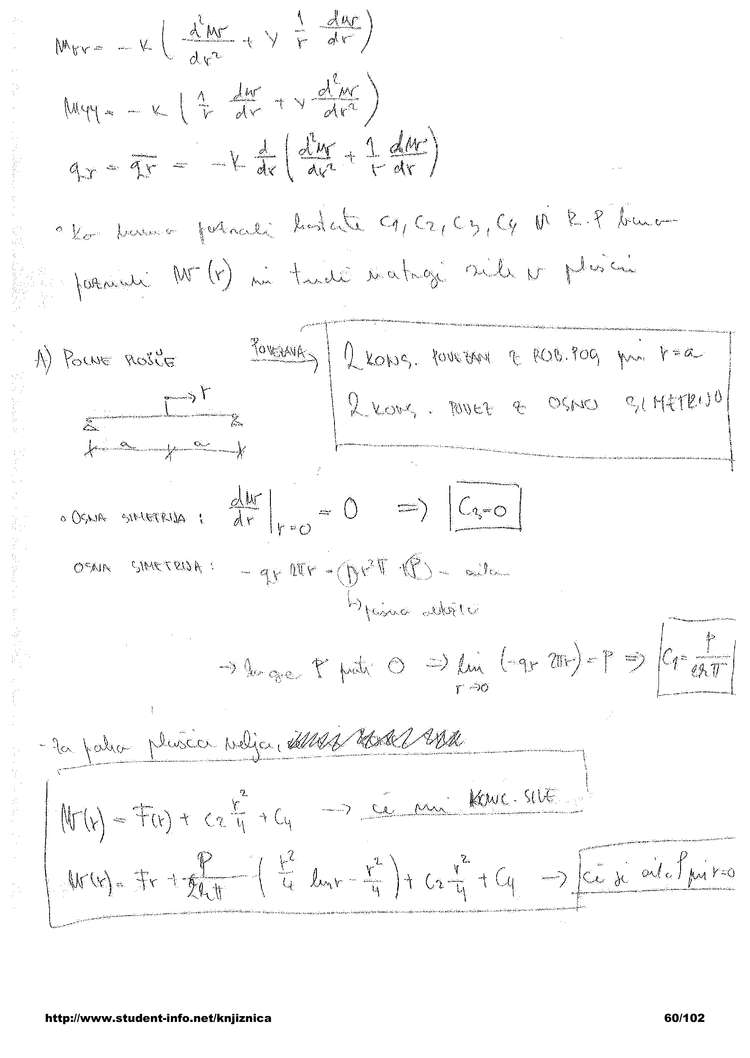 Mrr = - K ( d²w/dr² + ν 1/r dw/dr )
Mφφ = - K ( 1/r dw/dr + ν d²w/dr² )
qr = q̅r̅ = - K d/dr ( d²w/dr² + 1/r dw/dr )
• Ko bomo poznali konstante C1, C2, C3, C4 iz R.P bomo
poznali w(r) in tudi notranje sile v plošči
A) POLNE PLOŠČE
POVEZAVA →
2 KONS. POVEZANI Z ROB. POG pri r=a
2 KONS. POVEZ Z OSNO SIMETRIJO
r
a a
• OSNA SIMETRIJA : dw/dr |r=0 = 0 ⇒ C3=0
OSNA SIMETRIJA : - qr 2πr = p r²π + P - sila
↳
→ ko gre r proti 0 ⇒ lim r→0 (-qr 2πr) = P ⇒ C1 = P/2kπ
- Za polno ploščo velja,
w(r) = F(r) + C2 r²/4 + C4 → če ni KONC. SILE
w(r) = Fr + P/2kπ ( r²/4 lnr - r²/4 ) + C2 r²/4 + C4 → če je sila P pri r=0
http://www.student-info.net/knjiznica 60/102